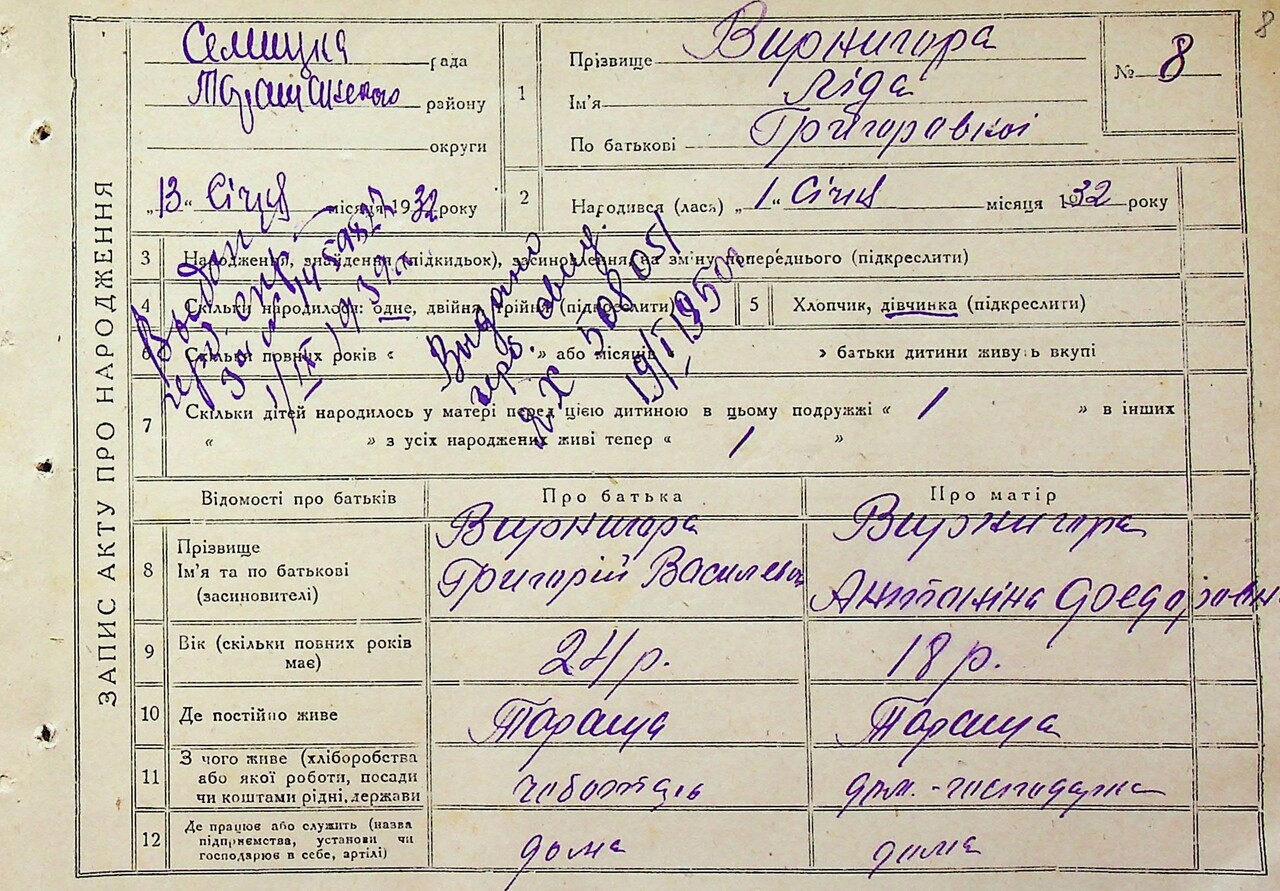 8
ЗАПИС АКТУ ПРО НАРОДЖЕННЯ
Селищна рада
Таращанского району
округи
„13“ Січня місяця 1932 року
1
Прізвище Вирнигора
Ім'я Ліда
По батькові Григоравної
№ 8
2 Народився (лась) „1“ Січня місяця 1932 року
3 Народження, знайдення (підкидьок), засиновлення, на зміну попереднього (підкреслити)
4 Скільки народилося: одне, двійня, трійня (підкреслити)
5 Хлопчик, дівчинка (підкреслити)
6 Скільки повних років « » або місяців » батьки дитини живуть вкупі
7 Скільки дітей народилось у матері перед цією дитиною в цьому подружжі « 1 » в інших
« » з усіх народжених живі тепер « 1 »
Видано
19/I 1950
Відомості про батьків Про батька Про матір
8 Прізвище
Ім'я та по батькові
(засиновителі)
Вирнигора
Григорій Василев
Вирнигора
Антоніна
9 Вік (скільки повних років має) 24 р. 18 р.
10 Де постійно живе Тараща Тараща
11 З чого живе (хліборобства
або якої роботи, посади
чи коштами рідні, держави
чоботарь дом.-господарка
12 Де працює або служить (назва
підприємства, установи чи
господарює в себе, артілі)
дома дома